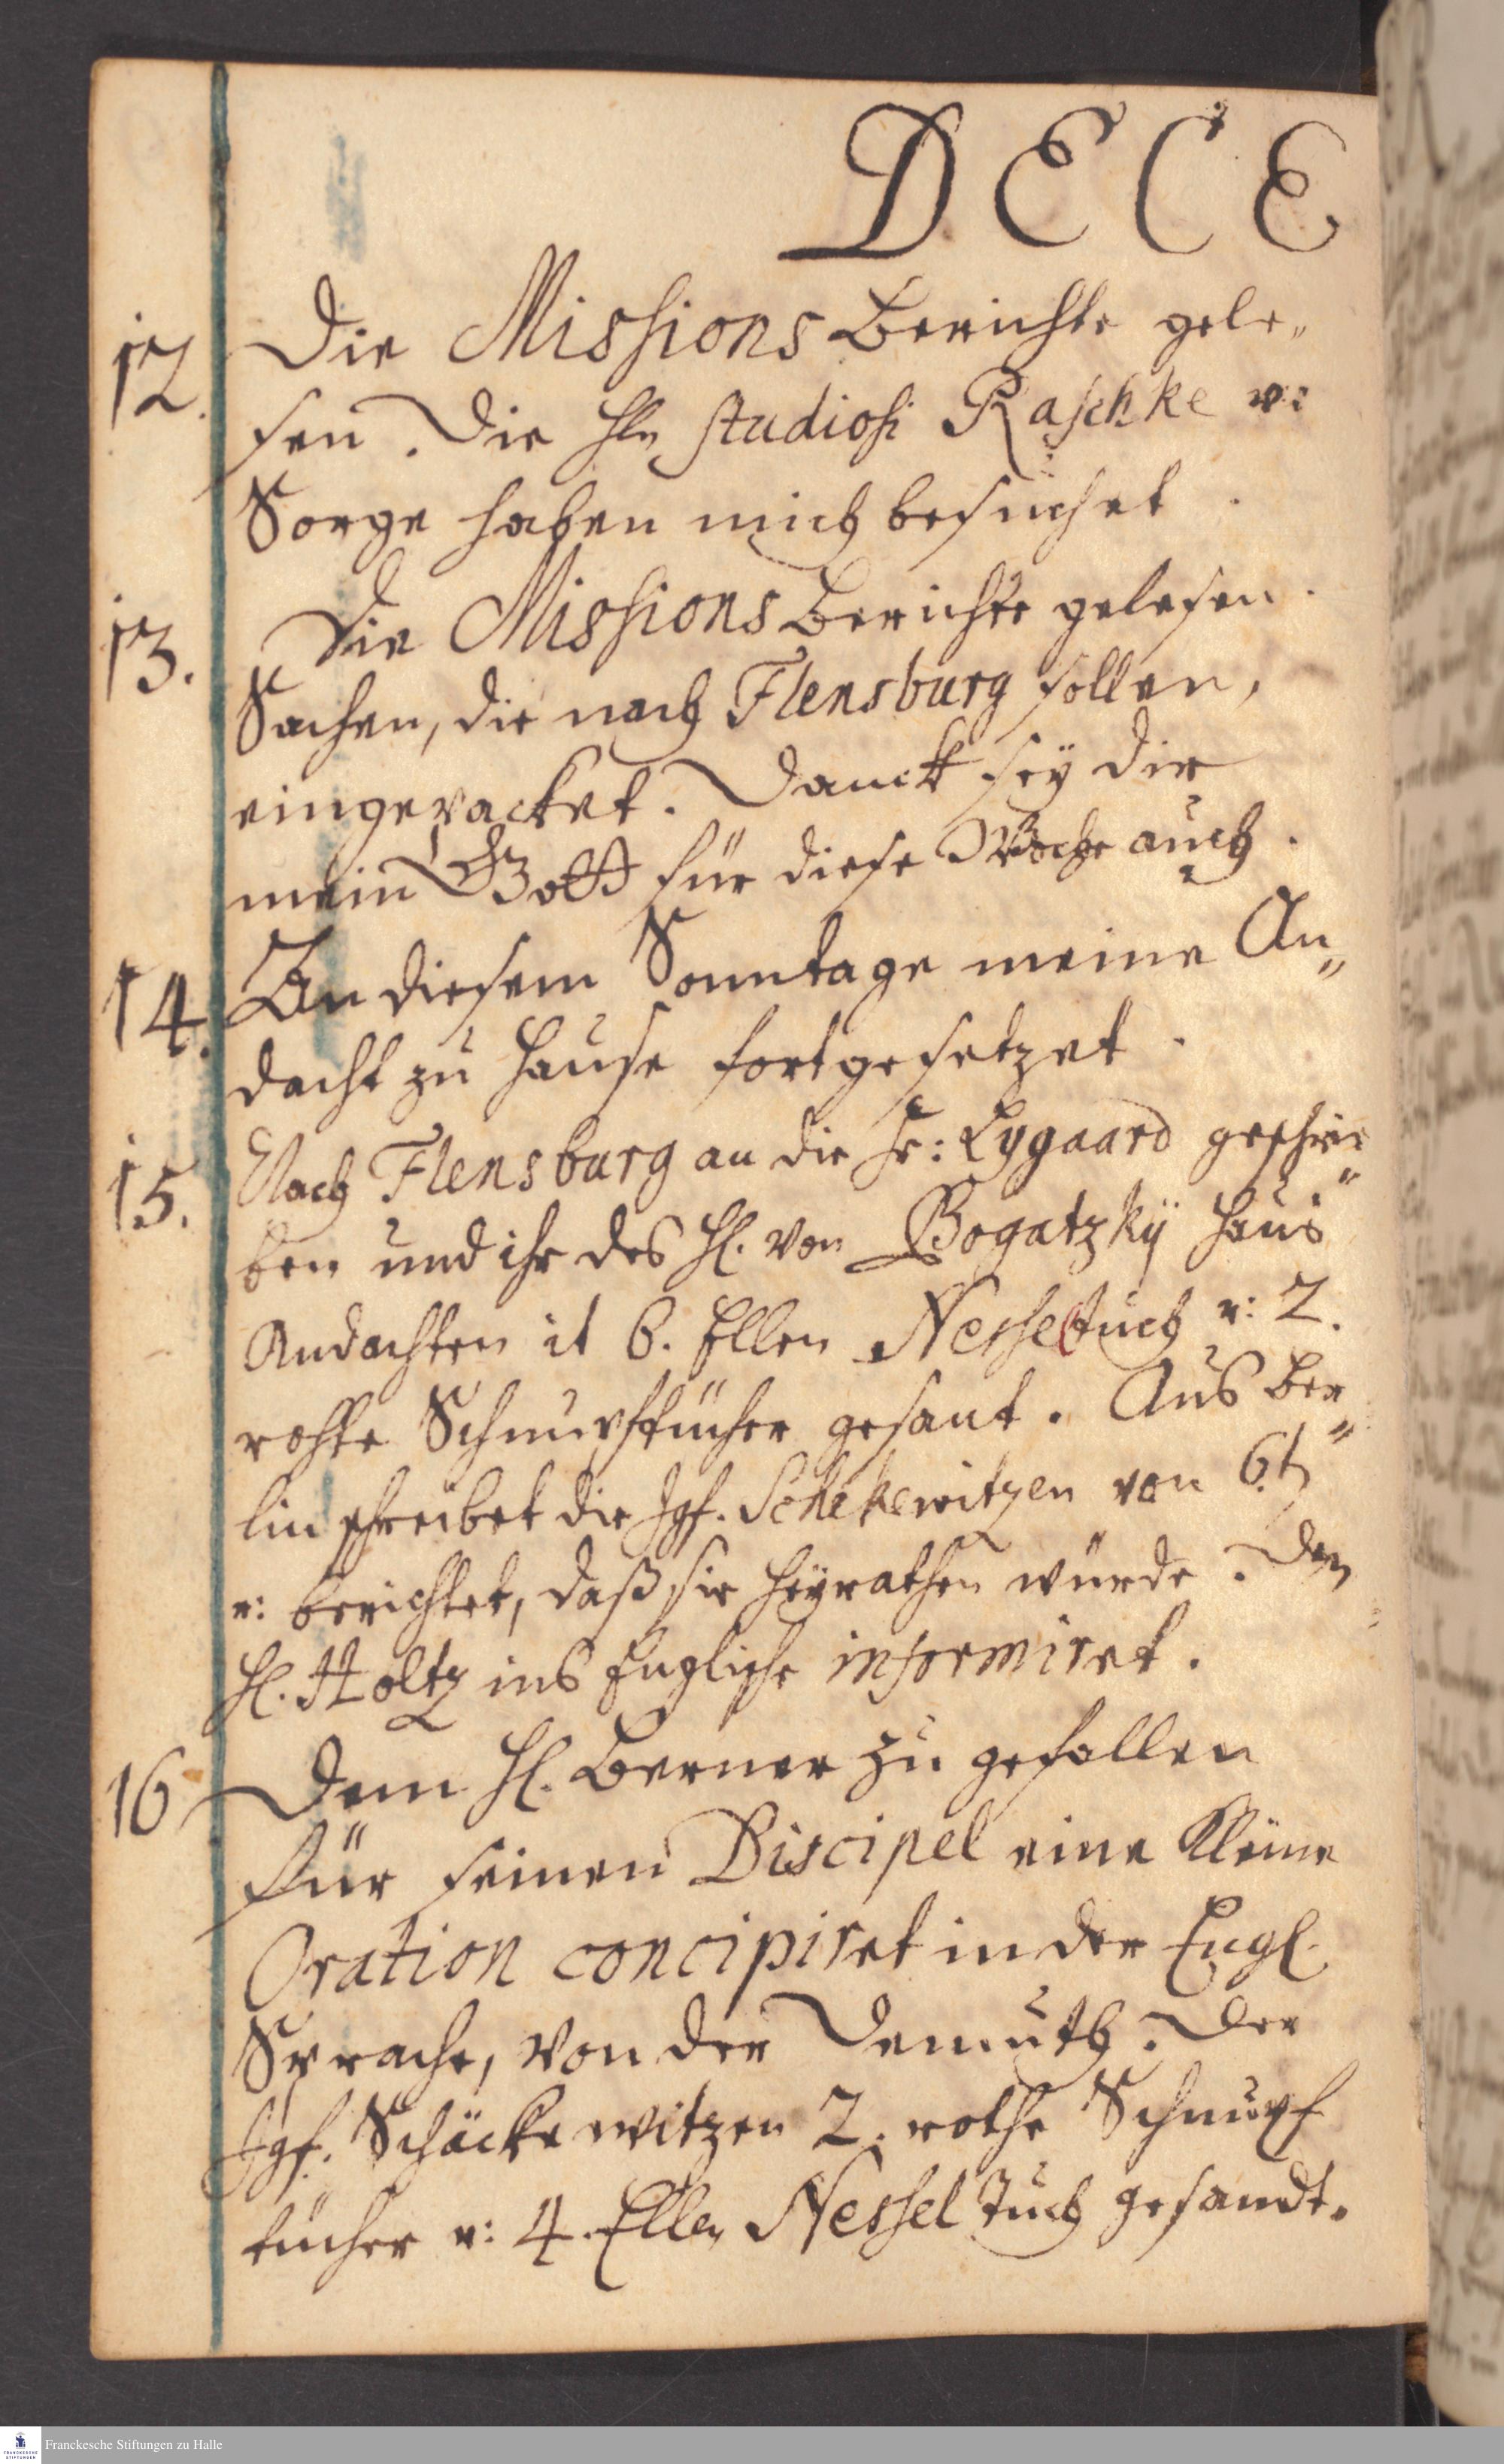 DECE
12. Die Missions Berichte gele„
sen. Die Hln Studiosi Raschke v:
Sorge haben mich besuchet.
13. Die Missions Berichte gelesen.
Sachen, die nach Flensburg sollen,
eingepacket. Danck sey dir
mein Gott für diese Woche auch.
14. An diesem Sonntage meine An„
dacht zu Hause fortgesetzet.
15. Nach Flensburg an die Fr: Lygaard geschrie„
ben und ihr des Hl. von Bogatzky Haus
Andachten it 6. Ellen Nesseltuch v: 2.
rothe Schnupftücher gesant. Aus Ber„
lin schreibet die Jgf. Schekewitzen von 6t
v: berichtet, daß sie heyrathen würde. Den
Hl. Holtz ins Englische informiret.
16 Dem Hl. Berner zu gefallen
für seinen Discipel eine kleine
Oration concipiret in der Engl.
Sprache, von der Demuth. Der
Jgf. Schäckewitzen 2. rothe Schnupf
tücher v: 4. Ellen Nessel tuch gesandt.
Franckesche Stiftungen zu Halle